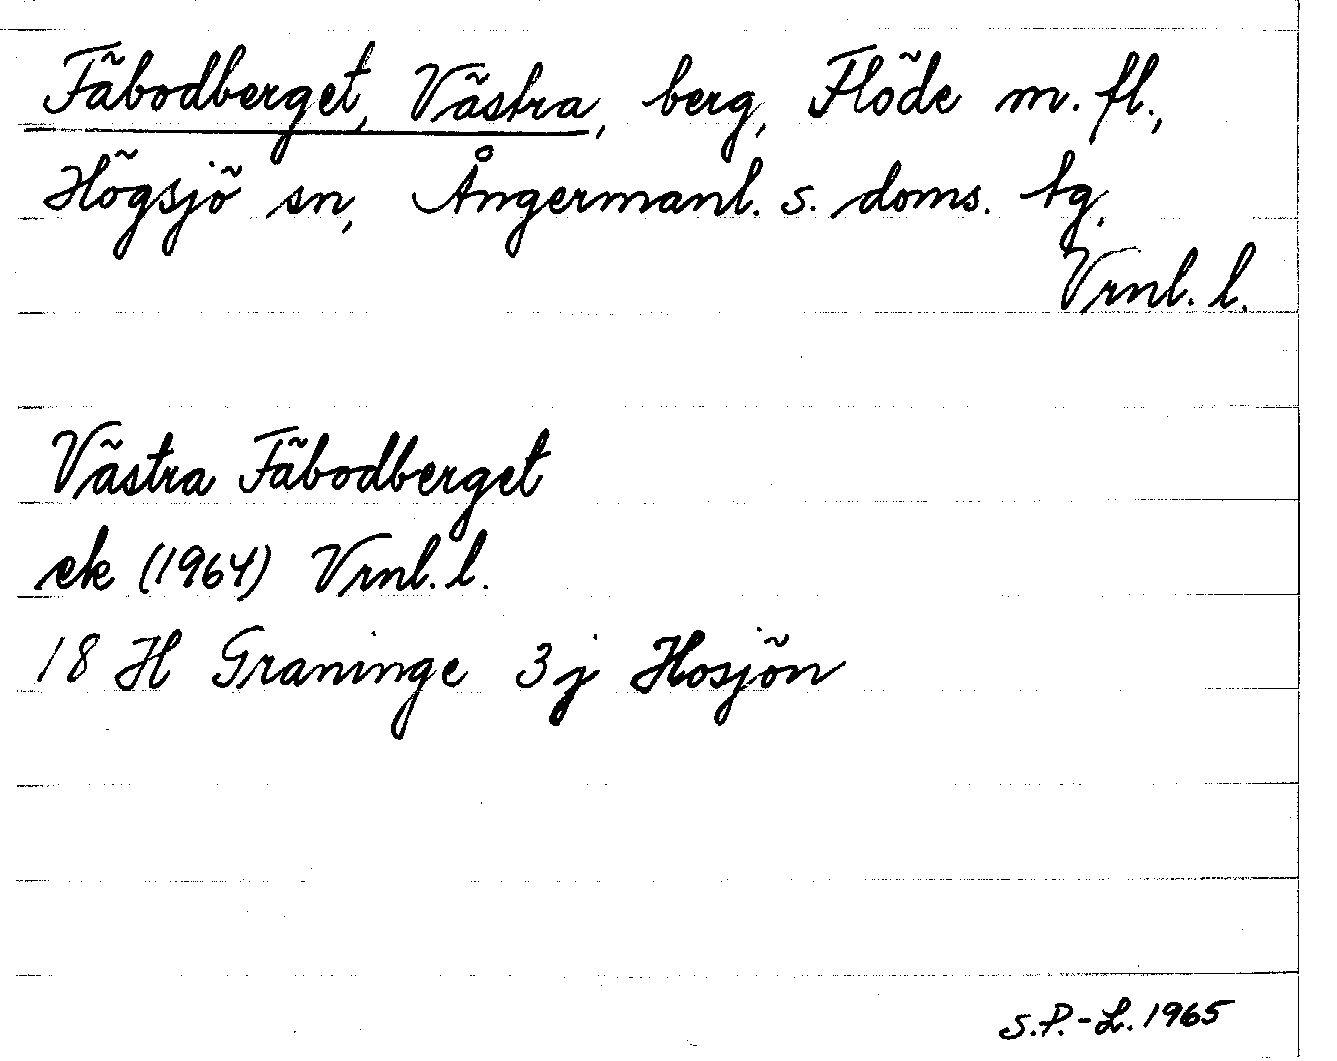 Fäbodberget, Västra, berg, Flöde m. fl.,
Högsjö sn, Ångermanl. s. doms. tg.
Vrnl. l.
Västra Fäbodberget
ek (1964) Vrnl. l.
18 H Graninge 3 j Hosjön
S.P.-L. 1965